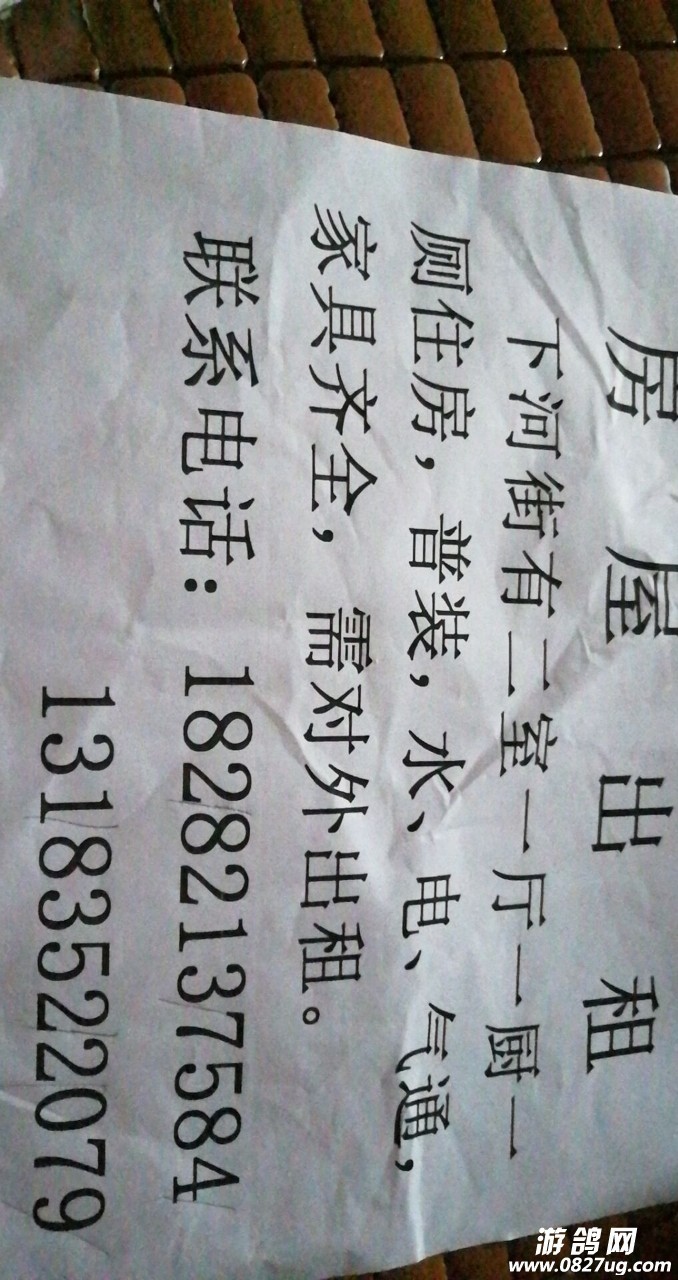 房屋出租
下河街有二室一厅一厨一
厕住房，普装，水、电、气通，
家具齐全，需对外出租。
联系电话：18282137584
13183522079
游鸽网
www.0827ug.com